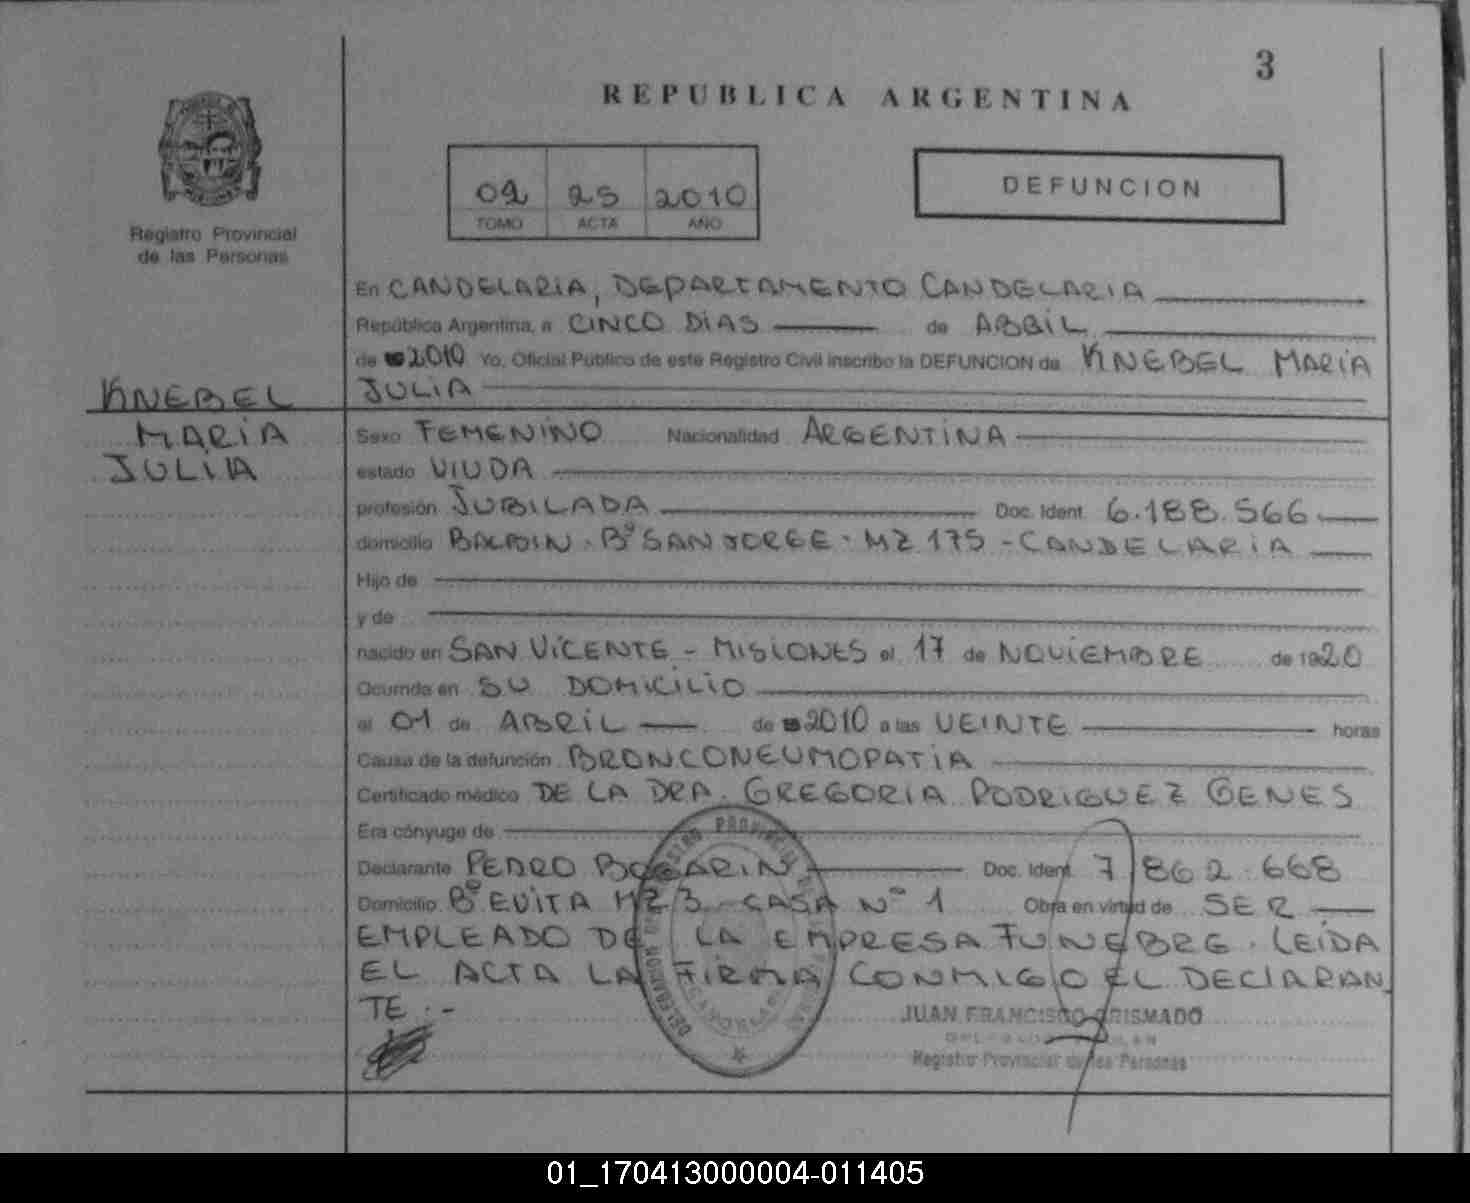 3
REPUBLICA ARGENTINA
02 25 2010
TOMO ACTA AÑO
DEFUNCION
Registro Provincial
de las Personas
En CANDELARIA, DEPARTAMENTO CANDELARIA
República Argentina, a CINCO DIAS de ABRIL
de 2010 Yo, Oficial Público de este Registro Civil inscribo la DEFUNCION de KNEBEL MARIA
JULIA
KNEBEL
MARIA
JULIA
Sexo FEMENINO Nacionalidad ARGENTINA
estado VIUDA
profesión JUBILADA Doc. Ident. 6.188.566
domicilio Bº SAN JORGE - MZ 175 - CANDELARIA
Hijo de
y de
nacido en SAN VICENTE - MISIONES el 17 de NOVIEMBRE de 1920
Ocurrida en SU DOMICILIO
el 01 de ABRIL de 2010 a las VEINTE horas
Causa de la defunción BRONCONEUMOPATIA
Certificado médico DE LA DRA. GREGORIA RODRIGUEZ GENES
Era cónyuge de
Declarante PEDRO BOGARIN Doc. Ident. 7.862.668
Domicilio Bº EVITA MZ 3 - CASA Nº 1 Obra en virtud de SER
EMPLEADO DE LA EMPRESA FUNEBRE. LEIDA
EL ACTA LA FIRMA CONMIGO EL DECLARAN
TE.-
JUAN FRANCISCO GRISMADO
Registro Provincial de las Personas
01_170413000004-011405